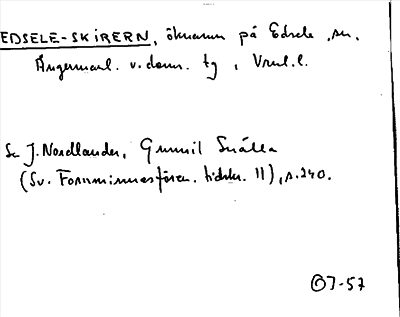 EDSELE-SKIRERN, öknamn på Edsele sn.
Ångermanl. v. domr. tg, Vml.l.
Se J. Nordlander, Gummil Snälla
(Sv. Fornminnesfören. tidskr. 11), s. 240.
OJ-57